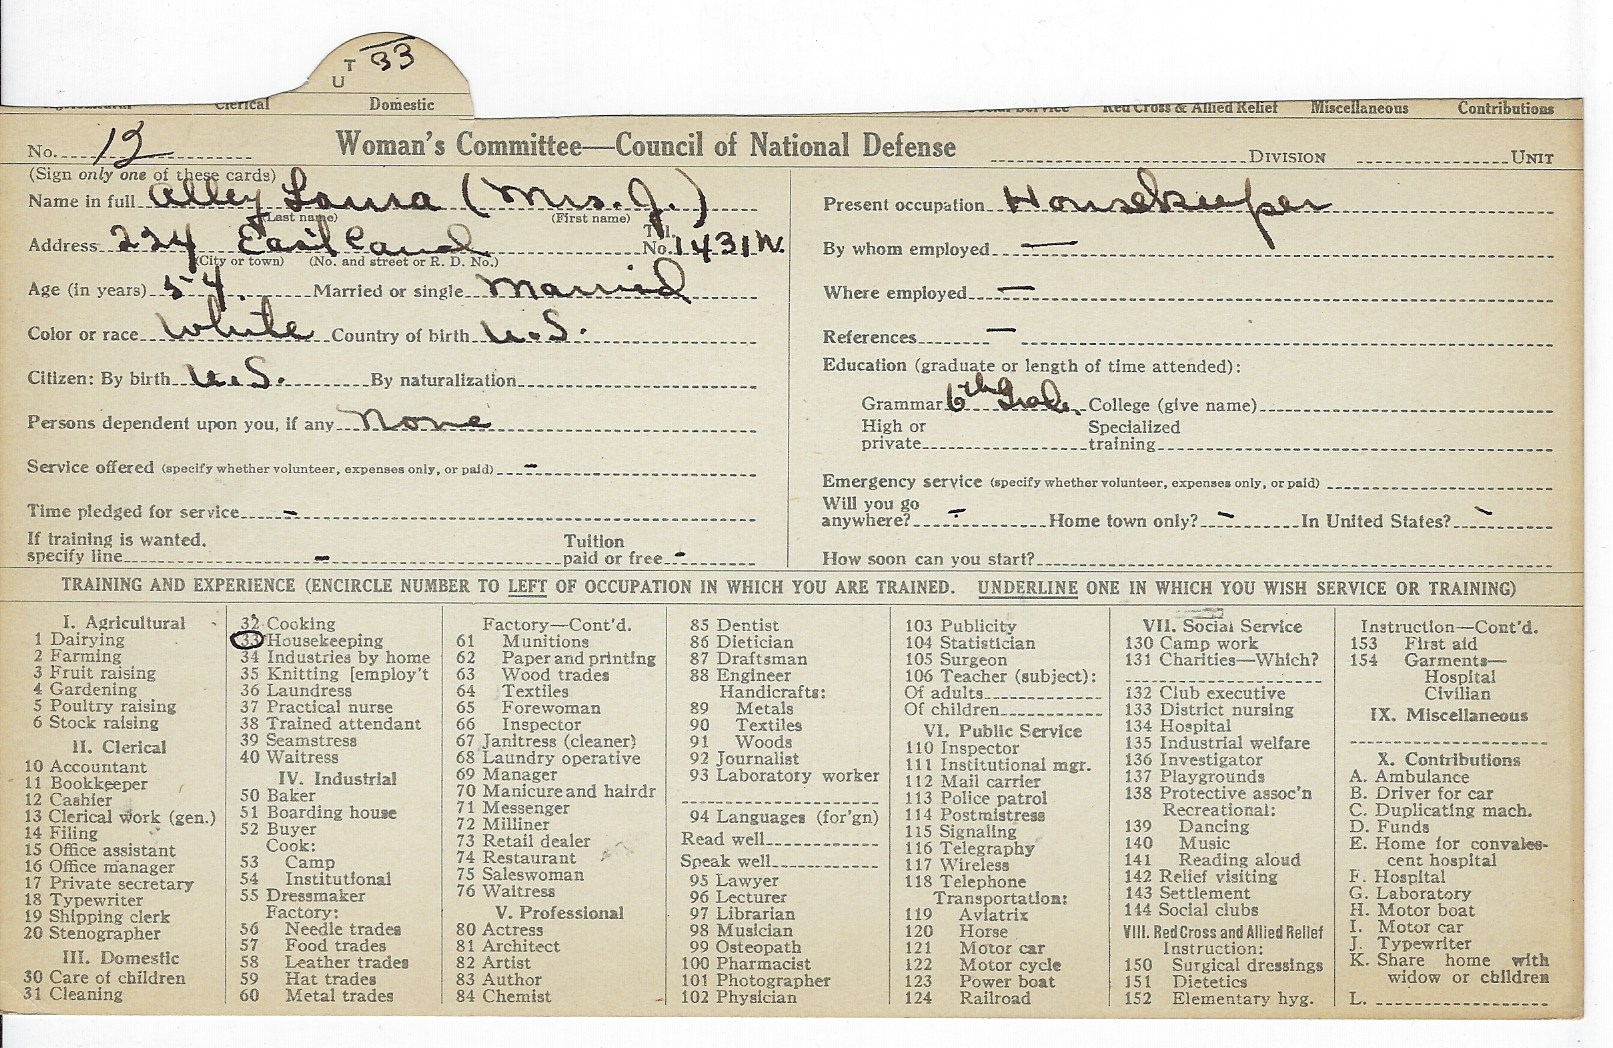 T 33
U
Clerical Domestic Red Cross & Allied Relief Miscellaneous Contributions
No. 12 Woman's Committee—Council of National Defense DIVISION UNIT
(Sign only one of these cards)
Name in full Alley Laura (Mrs. J.)
(Last name) (First name)
Address 224 East Canal Tel. No. 1431W.
(City or town) (No. and street or R. D. No.)
Age (in years) 54. Married or single Married
Color or race White Country of birth U.S.
Citizen: By birth U.S. By naturalization
Persons dependent upon you, if any None
Service offered (specify whether volunteer, expenses only, or paid) -
Time pledged for service -
If training is wanted,
specify line - Tuition paid or free -
Present occupation Housekeeper
By whom employed —
Where employed —
References —
Education (graduate or length of time attended):
Grammar 6th Grade College (give name)
High or private Specialized training
Emergency service (specify whether volunteer, expenses only, or paid)
Will you go
anywhere? - Home town only? - In United States? -
How soon can you start?
TRAINING AND EXPERIENCE (ENCIRCLE NUMBER TO LEFT OF OCCUPATION IN WHICH YOU ARE TRAINED. UNDERLINE ONE IN WHICH YOU WISH SERVICE OR TRAINING)
I. Agricultural
1 Dairying
2 Farming
3 Fruit raising
4 Gardening
5 Poultry raising
6 Stock raising
II. Clerical
10 Accountant
11 Bookkeeper
12 Cashier
13 Clerical work (gen.)
14 Filing
15 Office assistant
16 Office manager
17 Private secretary
18 Typewriter
19 Shipping clerk
20 Stenographer
III. Domestic
30 Care of children
31 Cleaning
32 Cooking
33 Housekeeping
34 Industries by home
35 Knitting [employ't
36 Laundress
37 Practical nurse
38 Trained attendant
39 Seamstress
40 Waitress
IV. Industrial
50 Baker
51 Boarding house
52 Buyer
Cook:
53 Camp
54 Institutional
55 Dressmaker
Factory:
56 Needle trades
57 Food trades
58 Leather trades
59 Hat trades
60 Metal trades
Factory—Cont'd.
61 Munitions
62 Paper and printing
63 Wood trades
64 Textiles
65 Forewoman
66 Inspector
67 Janitress (cleaner)
68 Laundry operative
69 Manager
70 Manicure and hairdr
71 Messenger
72 Milliner
73 Retail dealer
74 Restaurant
75 Saleswoman
76 Waitress
V. Professional
80 Actress
81 Architect
82 Artist
83 Author
84 Chemist
85 Dentist
86 Dietician
87 Draftsman
88 Engineer
Handicrafts:
89 Metals
90 Textiles
91 Woods
92 Journalist
93 Laboratory worker
94 Languages (for'gn)
Read well
Speak well
95 Lawyer
96 Lecturer
97 Librarian
98 Musician
99 Osteopath
100 Pharmacist
101 Photographer
102 Physician
103 Publicity
104 Statistician
105 Surgeon
106 Teacher (subject):
Of adults
Of children
VI. Public Service
110 Inspector
111 Institutional mgr.
112 Mail carrier
113 Police patrol
114 Postmistress
115 Signaling
116 Telegraphy
117 Wireless
118 Telephone
Transportation:
119 Aviatrix
120 Horse
121 Motor car
122 Motor cycle
123 Power boat
124 Railroad
VII. Social Service
130 Camp work
131 Charities—Which?
132 Club executive
133 District nursing
134 Hospital
135 Industrial welfare
136 Investigator
137 Playgrounds
138 Protective assoc'n
Recreational:
139 Dancing
140 Music
141 Reading aloud
142 Relief visiting
143 Settlement
144 Social clubs
VIII. Red Cross and Allied Relief
Instruction:
150 Surgical dressings
151 Dietetics
152 Elementary hyg.
Instruction—Cont'd.
153 First aid
154 Garments—
Hospital
Civilian
IX. Miscellaneous
X. Contributions
A. Ambulance
B. Driver for car
C. Duplicating mach.
D. Funds
E. Home for convales-
cent hospital
F. Hospital
G. Laboratory
H. Motor boat
I. Motor car
J. Typewriter
K. Share home with
widow or children
L.